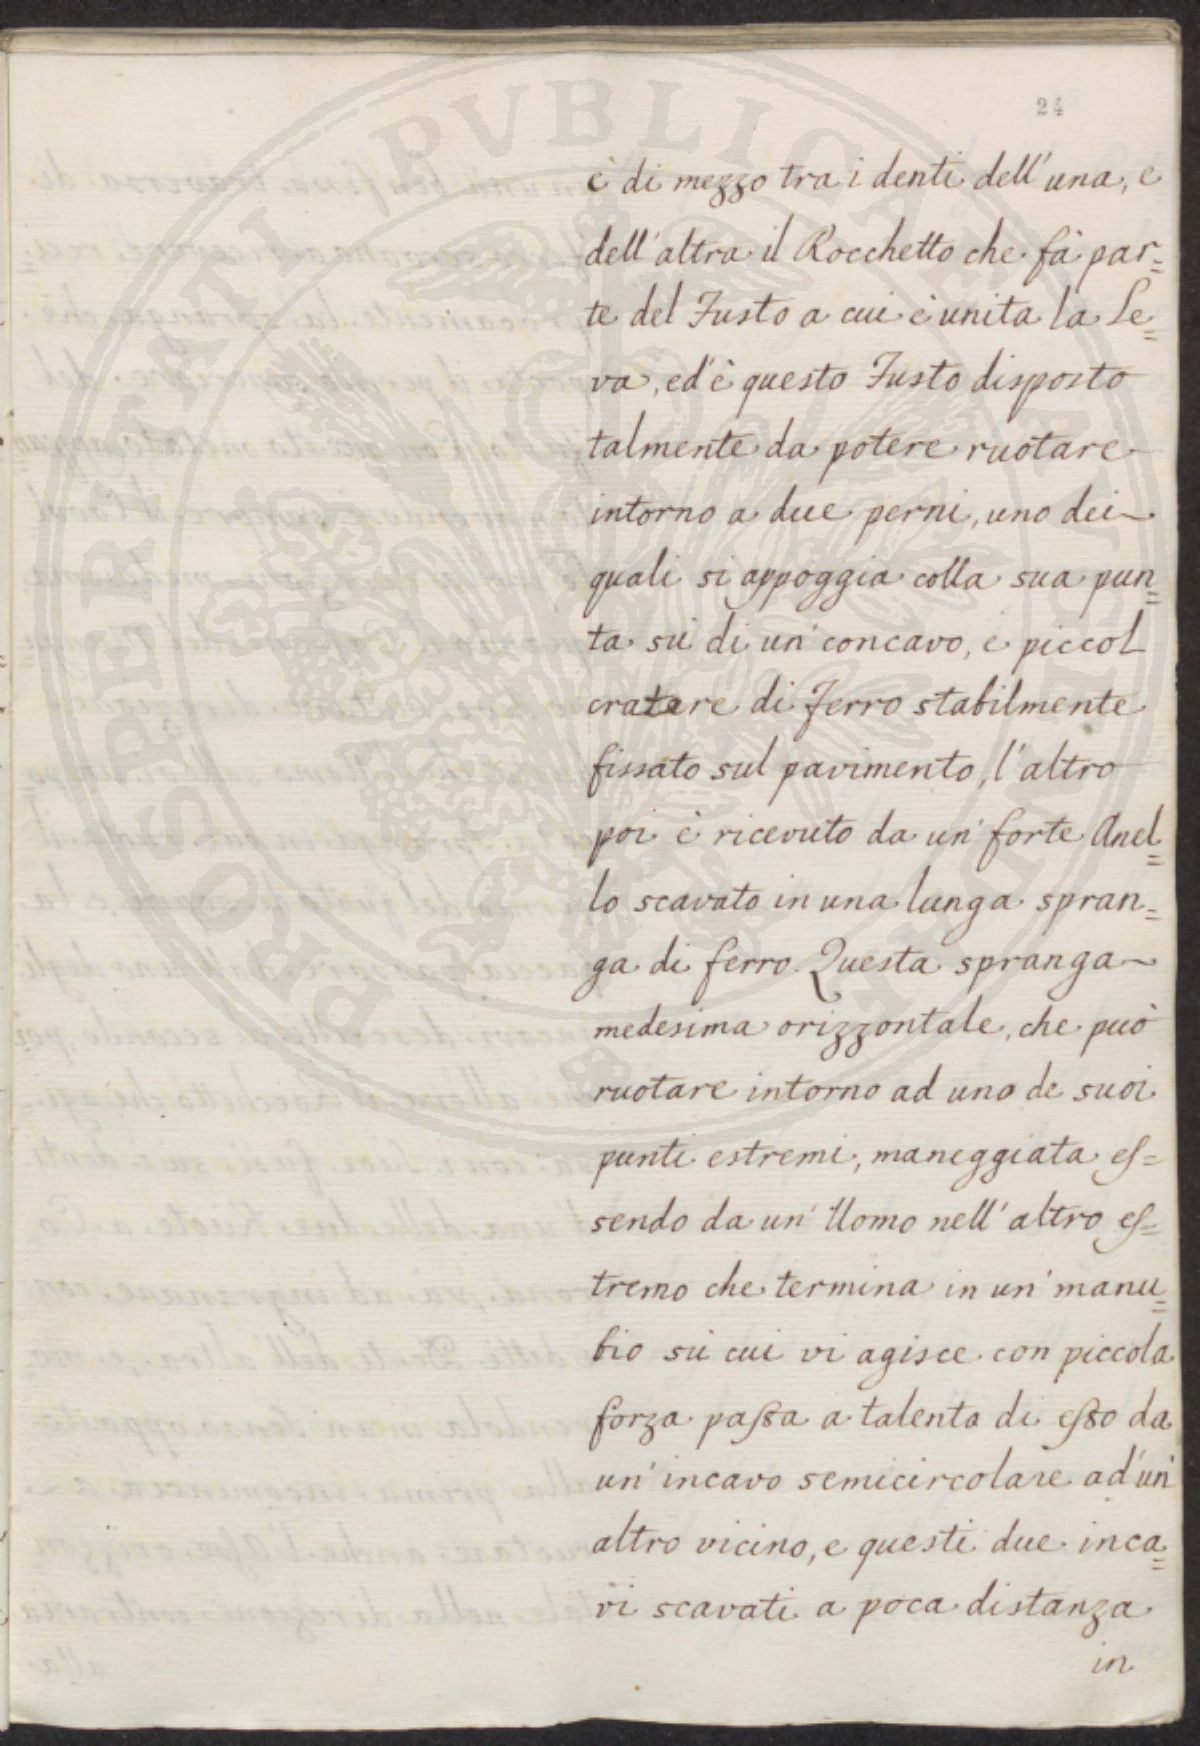 24
è di mezzo tra i denti dell'una, e
dell'altra il Rocchetto che fà par=
te del Fusto a cui è unita la Le=
va, ed'è questo Fusto disposto
talmente da potere ruotare
intorno a due perni, uno dei
quali si appoggia colla sua pun=
ta sù di un'concavo, e piccol
cratere di Ferro stabilmente
fissato sul pavimento, l'altro
poi è ricevuto da un'forte Anel=
lo scavato in una lunga spran=
ga di ferro. Questa spranga
medesima orizzontale, che può
ruotare intorno ad uno de suoi
punti estremi, maneggiata es=
sendo da un'Uomo nell'altro es=
tremo che termina in un'manu=
bio sù cui vi agisce con piccola
forza passa a talento di esso da
un'incavo semicircolare ad'un'
altro vicino, e questi due inca=
vi scavati a poca distanza
in
PROSPERITATI PUBLICAE AUGENDAE